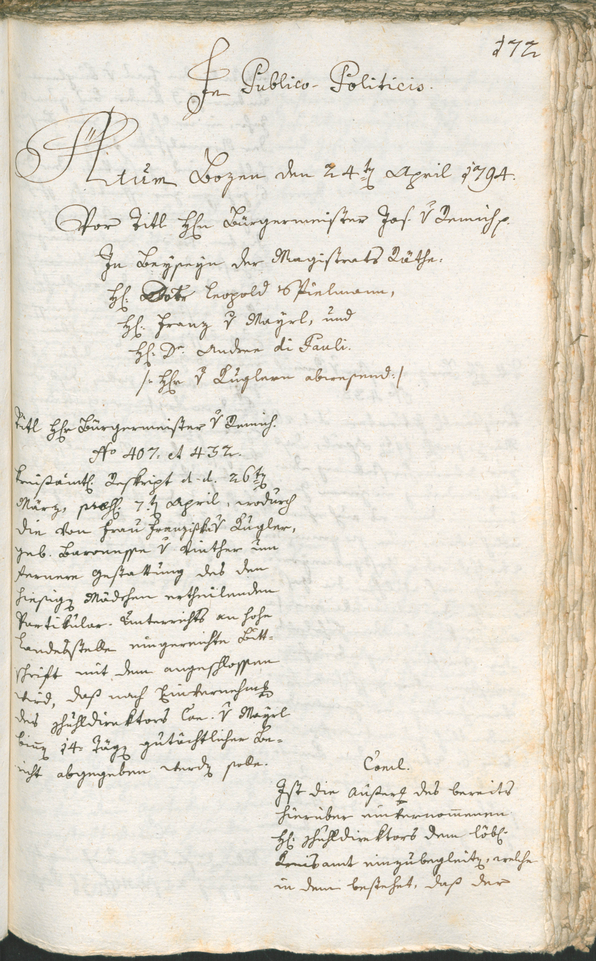 172
In Publico-Politicis.
Actum Bozen den 24ten April 1794.
Vor Titl Hhn Bürgermeister Jos. v Remich p.
In Beyseyn der Magistrats Räthe:
Hh. Leopold v Pielmann,
Hh. Franz v Mayrl, und
Hh. Dr. Andree di Pauli.
/: Hhr v Kuglern abwesend :/
Titl Hhr Bürgermeister v Remich.
No 407. et 432.
Kreisämtl. Reskript d. d. 26ten
März, praes. 7ten April, wodurch
die von Frau Franziska v Kugler,
geb. Baronesse v Vinther um
fernere Gestattung des den
hiesigen Mädchen ertheilenden
Partikular-Unterrichts an hohe
Landesstelle eingereichte Bitt-
schrift mit dem angeschlossen
wird, daß nach Einvernehmung
des Schuldirektors Can. v Mayrl
binnen 14 Tägen gutächtlicher Be-
richt abgegeben werden solle.
Concl.
Ist die Außerung des bereits
hierüber einvernommenen
Hh. Schuldirektors dem löbl.
Kreisamt einzubegleiten, welche
in dem bestehet, daß der